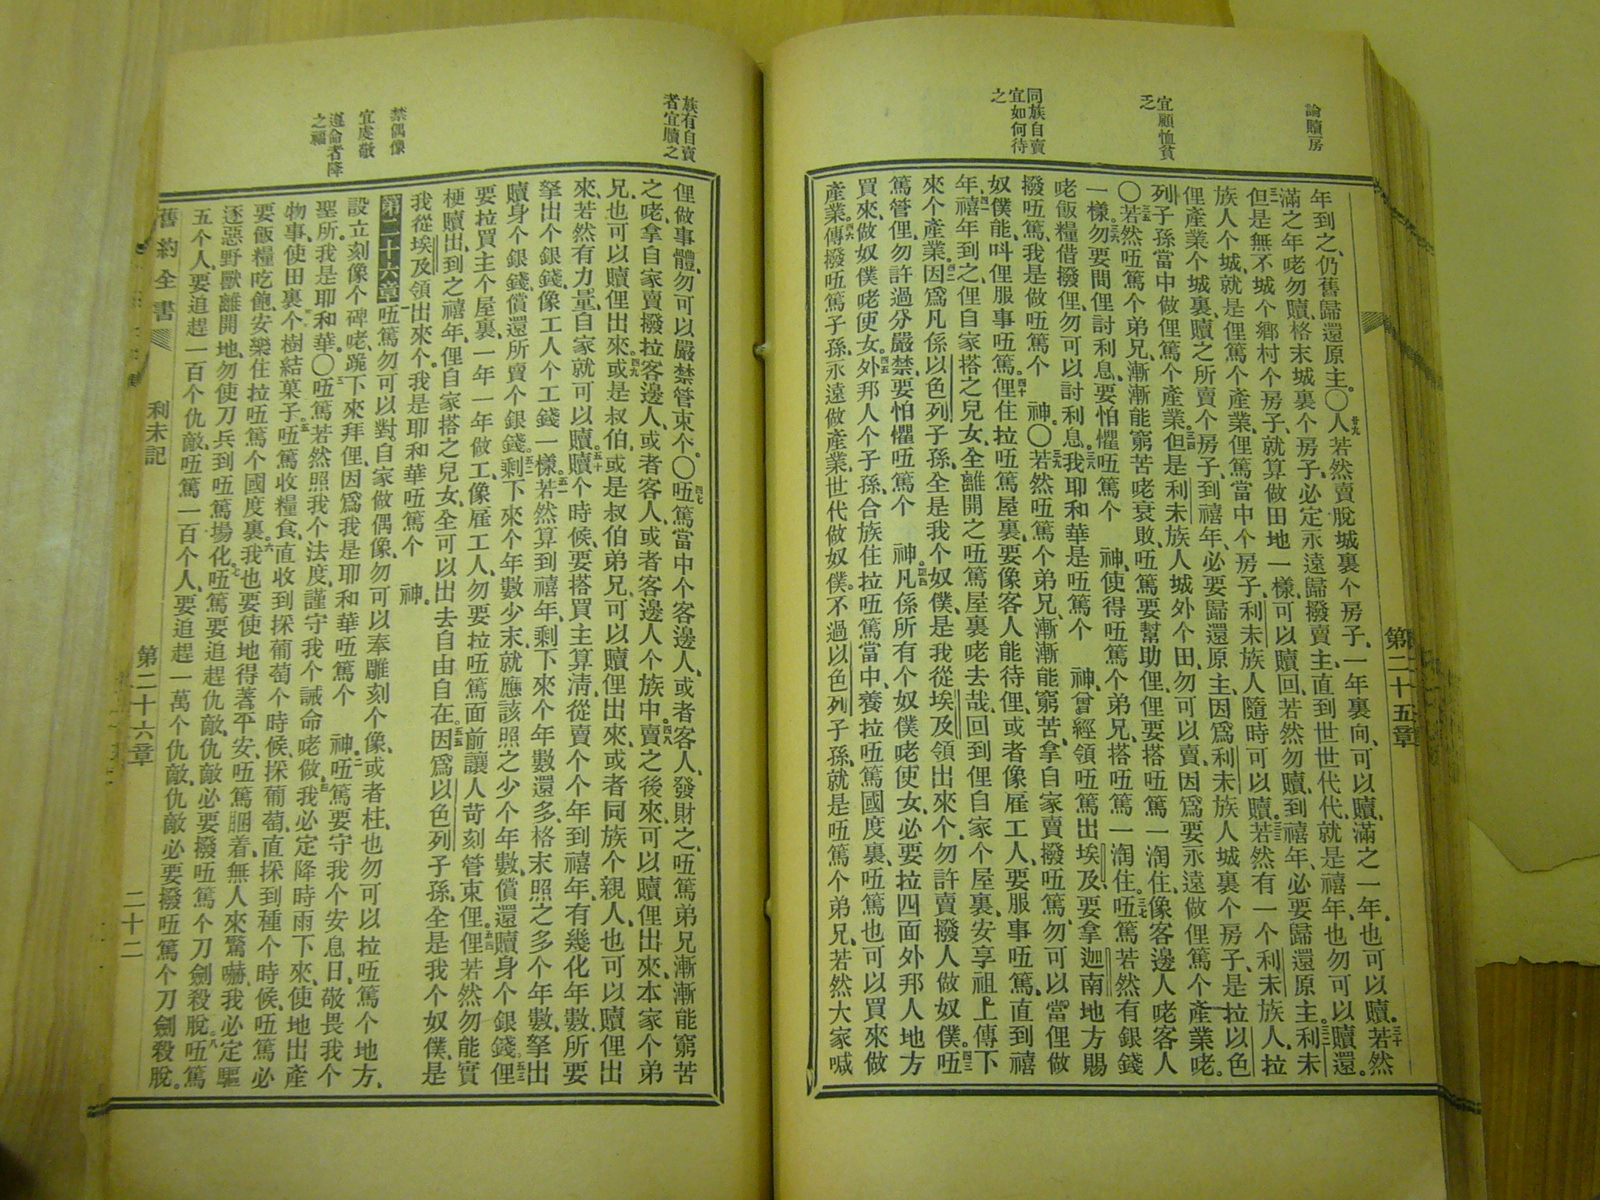 論贖房
宜顧恤貧乏
同族自賣宜如何待之
年到之、仍舊歸還原主。〇人若然賣脫城裏个房子、一年裏向、可以贖、滿之一年、也可以贖。若然
滿之年咾勿贖、格末城裏个房子、必定永遠歸撥賣主、直到世世代代就是禧年、也勿可以贖還。
但是無不城个鄉村个房子、就算做田地一樣、可以贖回、若然勿贖、到禧年、必要歸還原主。利未
族人个城、就是俚篤个產業、俚篤當中个房子、利未族人隨時可以贖。若然有一个利未族人、拉
俚產業个城裏、贖之所賣个房子、到禧年、必要歸還原主、因爲利未族人城裏个房子、是拉以色
列子孫當中做俚篤个產業。但是利未族人城外个田、勿可以賣、因爲要永遠做俚篤个產業咾。
〇若然㕶篤个弟兄、漸漸能窮苦咾衰敗、㕶篤要幫助俚、俚要搭㕶篤一淘住、像客邊人咾客人
一樣。勿要問俚討利息、要怕懼㕶篤个 神、使得㕶篤个弟兄、搭㕶篤一淘住。㕶篤若然有銀錢
咾飯糧借撥俚、勿可以討利息。我耶和華是㕶篤个 神、曾經領㕶篤出埃及、要拿迦南地方賜
撥㕶篤、我是做㕶篤个 神。〇若然㕶篤个弟兄、漸漸能窮苦、拿自家賣撥㕶篤、勿可以當俚做
奴僕能、呌俚服事㕶篤。俚住拉㕶篤屋裏、要像客人能待俚、或者像雇工人、要服事㕶篤、直到禧
年。禧年到之、俚自家搭之兒女、全離開之㕶篤屋裏咾去哉、回到俚自家个屋裏、安享祖上傳下
來个產業。因爲凡係以色列子孫、全是我个奴僕、是我從埃及領出來个、勿許賣撥人做奴僕。㕶
篤管俚、勿許過分嚴禁、要怕懼㕶篤个 神。凡係所有个奴僕咾使女、必要拉四面外邦人地方
買來、做奴僕咾使女。外邦人个子孫合族住拉㕶篤當中、養拉㕶篤國度裏、㕶篤也可以買來做
產業。傳撥㕶篤子孫、永遠做產業、世代做奴僕。不過以色列子孫、就是㕶篤个弟兄、若然大家喊
第二十五章
族有自賣者宜贖之
禁偶像
宜虔敬
遵命者降之福
俚做事體、勿可以嚴禁管束个。〇㕶篤當中个客邊人、或者客人、發財之、㕶篤弟兄漸漸能窮苦
之咾、拿自家賣撥拉客邊人、或者客人、或者客邊人个族中。賣之後來、可以贖俚出來、本家个弟
兄、也可以贖俚出來。或是叔伯、或是叔伯弟兄、可以贖俚出來、或者同族个親人、也可以贖俚出
來、若然有力量、自家就可以贖。贖个時候、要搭買主算清、從賣个个年到禧年、有幾化年數、所要
拏出个銀錢、像工人个工錢一樣。若然算到禧年、剩下來个年數還多、格末照之多个年數、拏出
贖身个銀錢、償還所賣个銀錢。剩下來个年數少末、就應該照之少个年數、償還贖身个銀錢。俚
要拉買主个屋裏、一年一年做工、像雇工人、勿要拉㕶篤面前、讓人苛刻管束俚。俚若然勿能實
梗贖出、到之禧年、俚自家搭之兒女、全可以出去自由自在。因爲以色列子孫、全是我个奴僕、是
我從埃及領出來个。我是耶和華㕶篤个 神。
第二十六章 㕶篤勿可以對自家做偶像、勿可以奉雕刻个像、或者柱、也勿可以拉㕶篤个地方、
設立刻像个碑咾、跪下來拜俚、因爲我是耶和華㕶篤个 神。㕶篤要守我个安息日、敬畏我个
聖所、我是耶和華。〇㕶篤若然照我个法度、謹守我个誡命咾做、我必定降時雨下來、使地出產
物事、使田裏个樹結菓子。㕶篤收糧食、直收到採葡萄个時候、採葡萄、直採到種个時候、㕶篤必
要飯糧吃飽、安樂住拉㕶篤个國度裏。我也要使地得著平安、㕶篤睏着、無人來驚嚇、我必定驅
逐惡野獸離開地、勿使刀兵到㕶篤場化。㕶篤要追趕仇敵、仇敵必要撥㕶篤个刀劍殺脫。㕶篤
五个人、要追趕一百个仇敵、㕶篤一百个人、要追趕一萬个仇敵、仇敵必要撥㕶篤个刀劍殺脫。
舊約全書 利未記 第二十六章 二十二